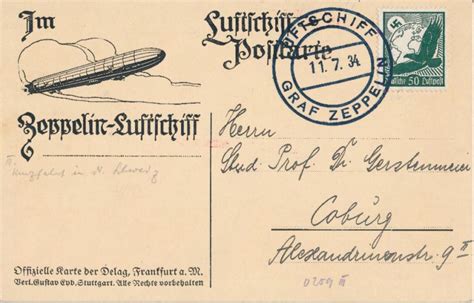 Im
Luftschiff
Postkarte
LUFTSCHIFF
11.7.34
GRAF ZEPPELIN
Deutsche 50 Luftpost
Zeppelin-Luftschiff
II.
Herrn
Stud Prof Dr Gerstenmeier
Coburg
Alexandrinenstr. 9 II
Offizielle Karte der Delag, Frankfurt a. M.
Verl. Gustav Eyb. Stuttgart. Alle Rechte vorbehalten